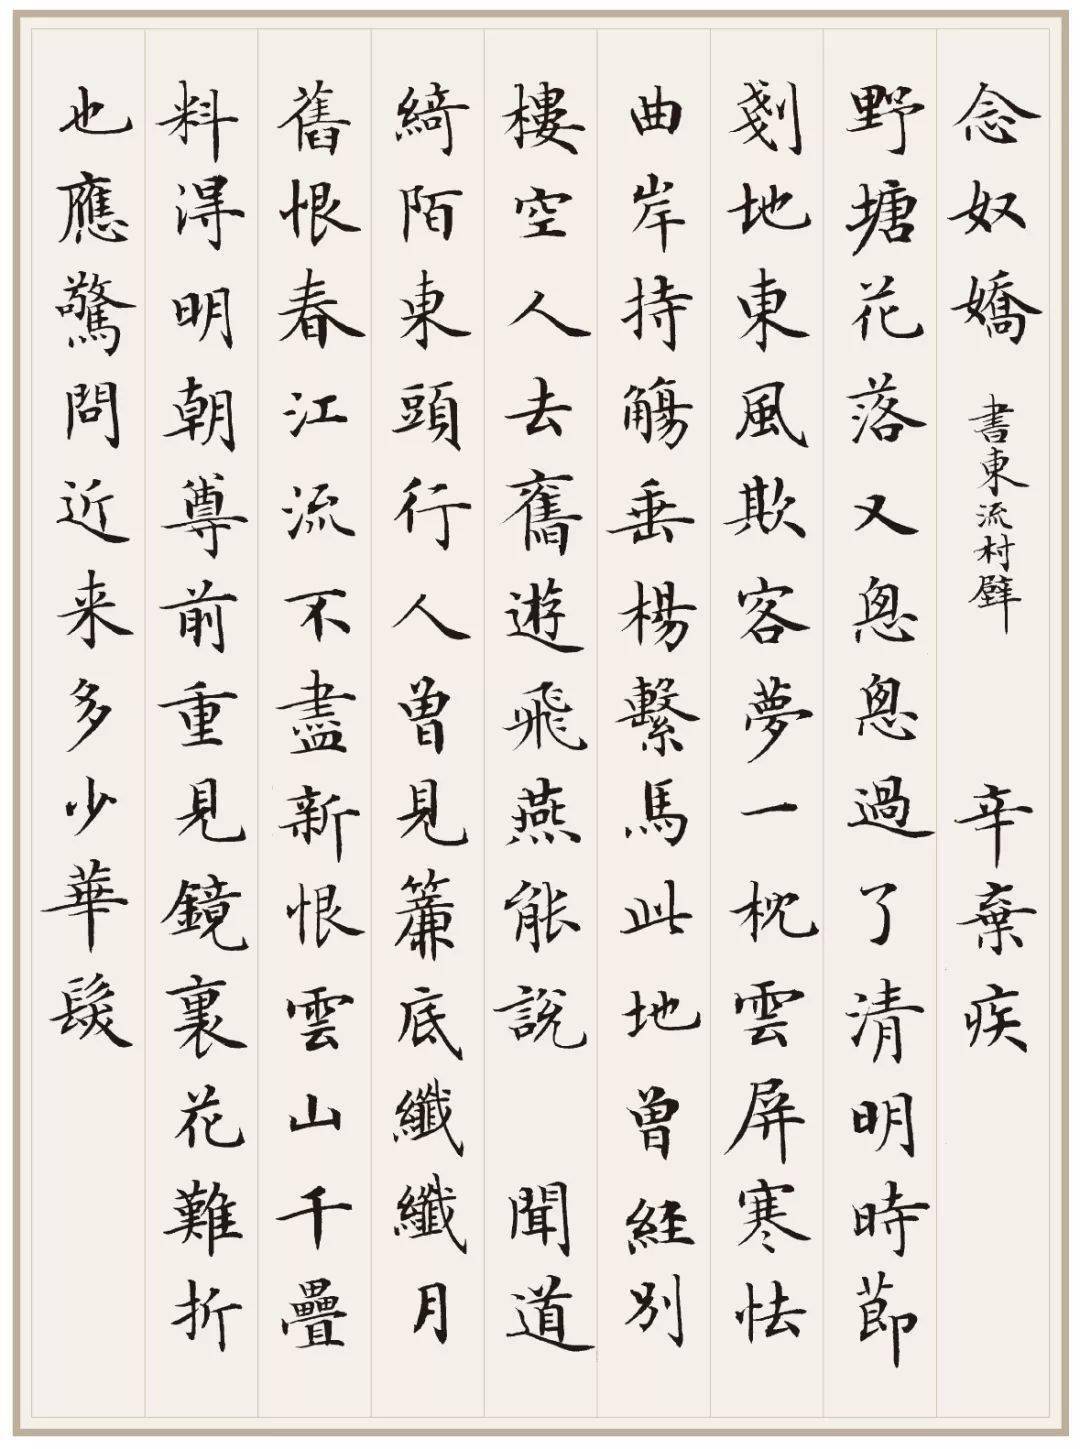 念奴嬌 書東流村壁 辛棄疾
野塘花落又怱怱過了清明時節
剗地東風欺客夢一枕雲屏寒怯
曲岸持觴垂楊繫馬此地曾經別
樓空人去舊遊飛燕能說 聞道
綺陌東頭行人曾見簾底纖纖月
舊恨春江流不盡新恨雲山千疊
料得明朝尊前重見鏡裏花難折
也應驚問近来多少華髮